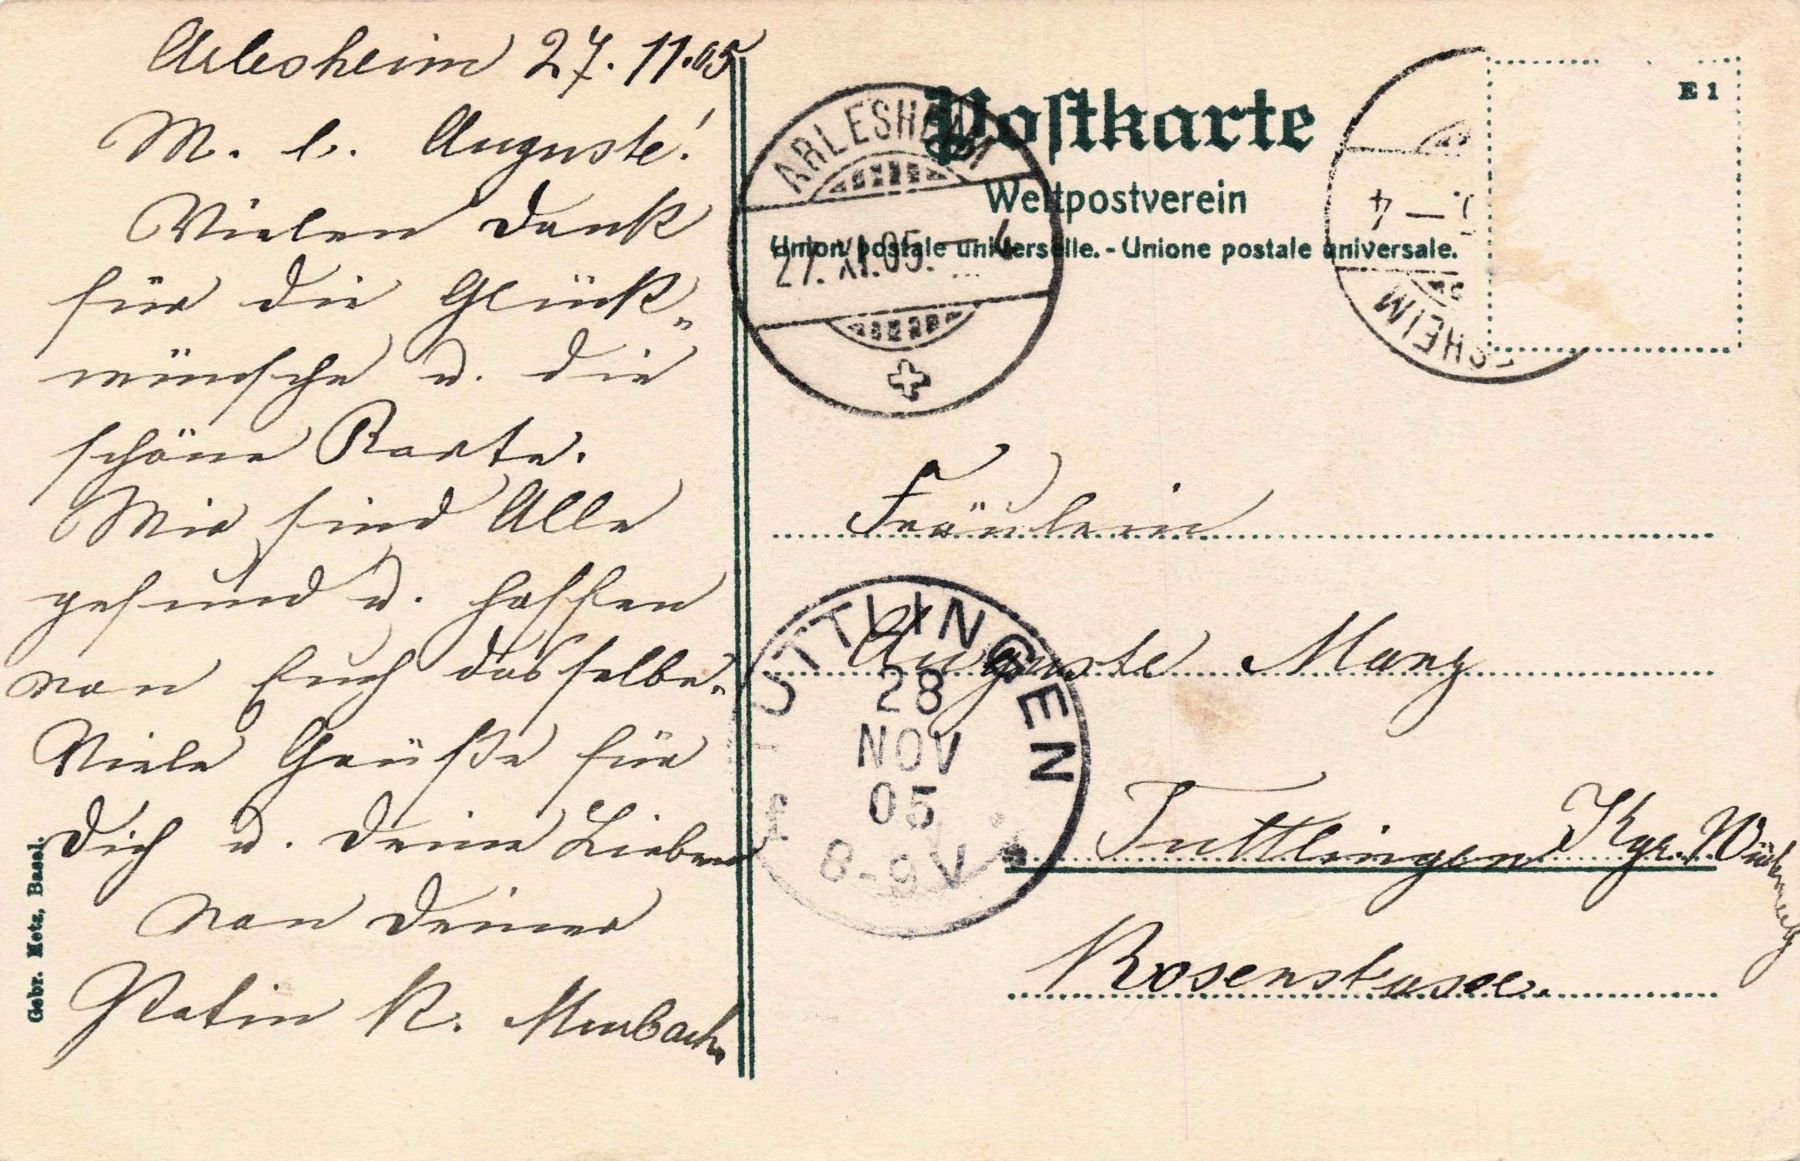 Arlesheim 27.11.05
M. l. Auguste!
Vielen Dank
für die Glück-
wünsche u. die
schöne Karte.
Wir sind Alle
gesund u. hoffen
von Euch dasselbe.
Viele Grüße für
Dich u. Deine Lieben
von Deiner
Gotin K. Murbach.
Gebr. Metz, Basel.
Postkarte
Weltpostverein
Union postale universelle. - Unione postale universale.
E 1
ARLESHEIM
27. XI. 05. — 4
SHEIM
— 4
TUTTLINGEN
28
NOV
05
8-9 V
Fräulein
Auguste Manz
Tuttlingen Kgr. Württemberg
Rosenstrasse.